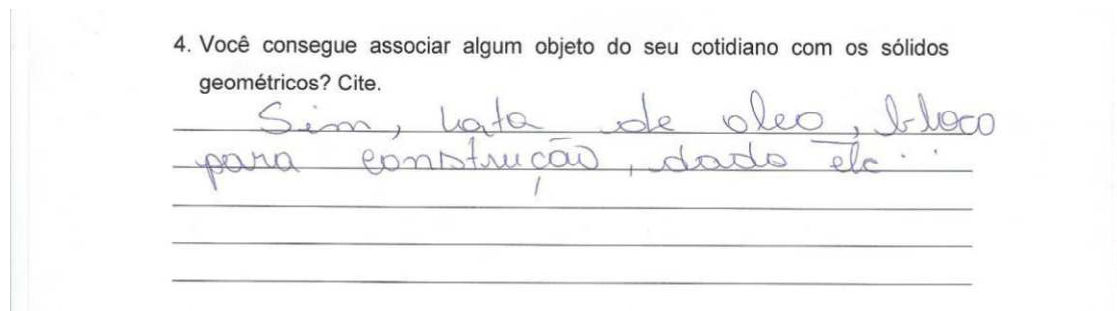 4. Você consegue associar algum objeto do seu cotidiano com os sólidos
geométricos? Cite.
Sim, lata de oleo, bloco
para construção, dado etc...